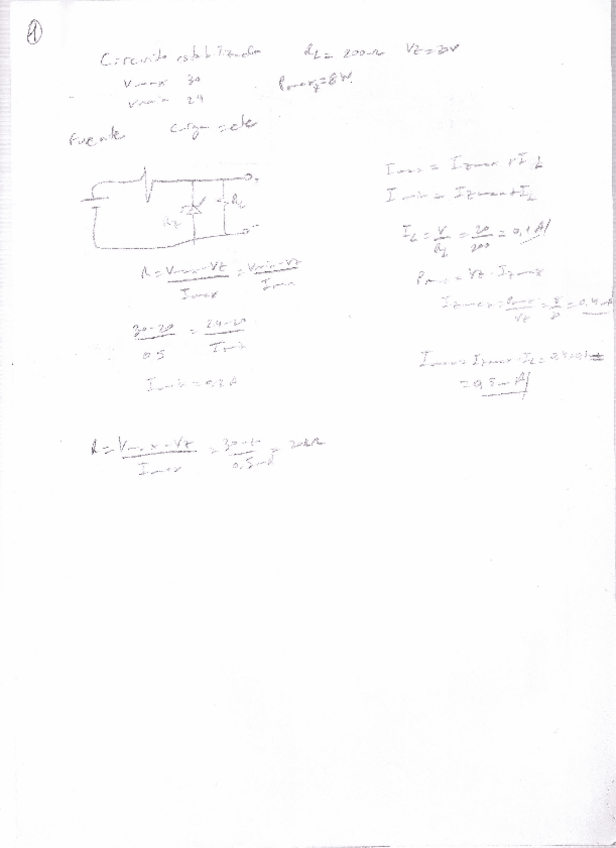 ①
Circuito estabilizador RL = 200Ω VZ = 20V
Vmax 30 Pmaxz = 8W.
Vmin 24
Fuente Carga = cte
RZ RL
R = Vmax-VZ / Imax = Vmin-VZ / Imin
30-20 / 0.5 = 24-20 / Imin
Imin = 0,2A
R = Vmax-VZ / Imax = 30-20 / 0,5mA =
Imax = IZmax + IL
Imin = IZmin + IL
IL = V / RL = 20 / 200 = 0,1A
Pmax = VZ · IZmax
IZmax = Pmax / VZ = 8 / 20 = 0,4mA
Imax = IZmax + IL = 0,4+0,1 =
= 0,5mA